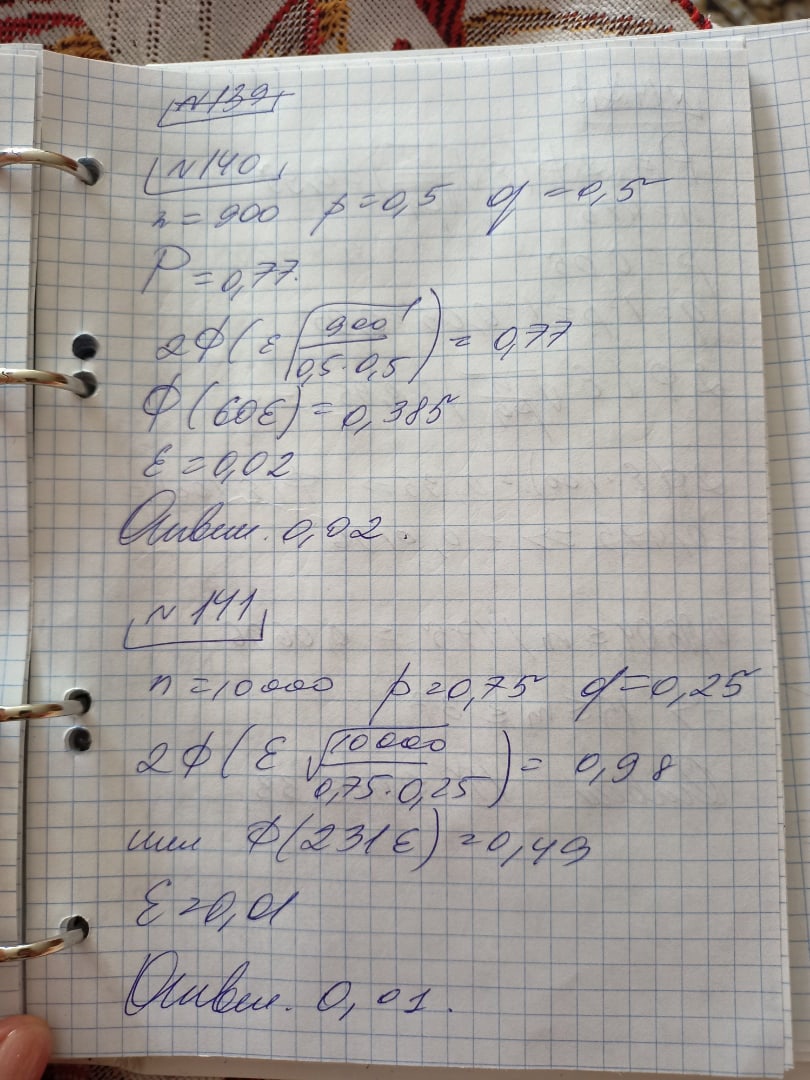 N139
N140
n = 900 p = 0,5 q = 0,5
P = 0,77.
2Ф(ε√(900/(0,5·0,5))) = 0,77
Ф(60ε) = 0,385
ε = 0,02
Ответ. 0,02.
N 141
n = 10000 p = 0,75 q = 0,25
2Ф(ε√(10000/(0,75·0,25))) = 0,98
или Ф(231ε) = 0,49
ε = 0,01
Ответ. 0,01.